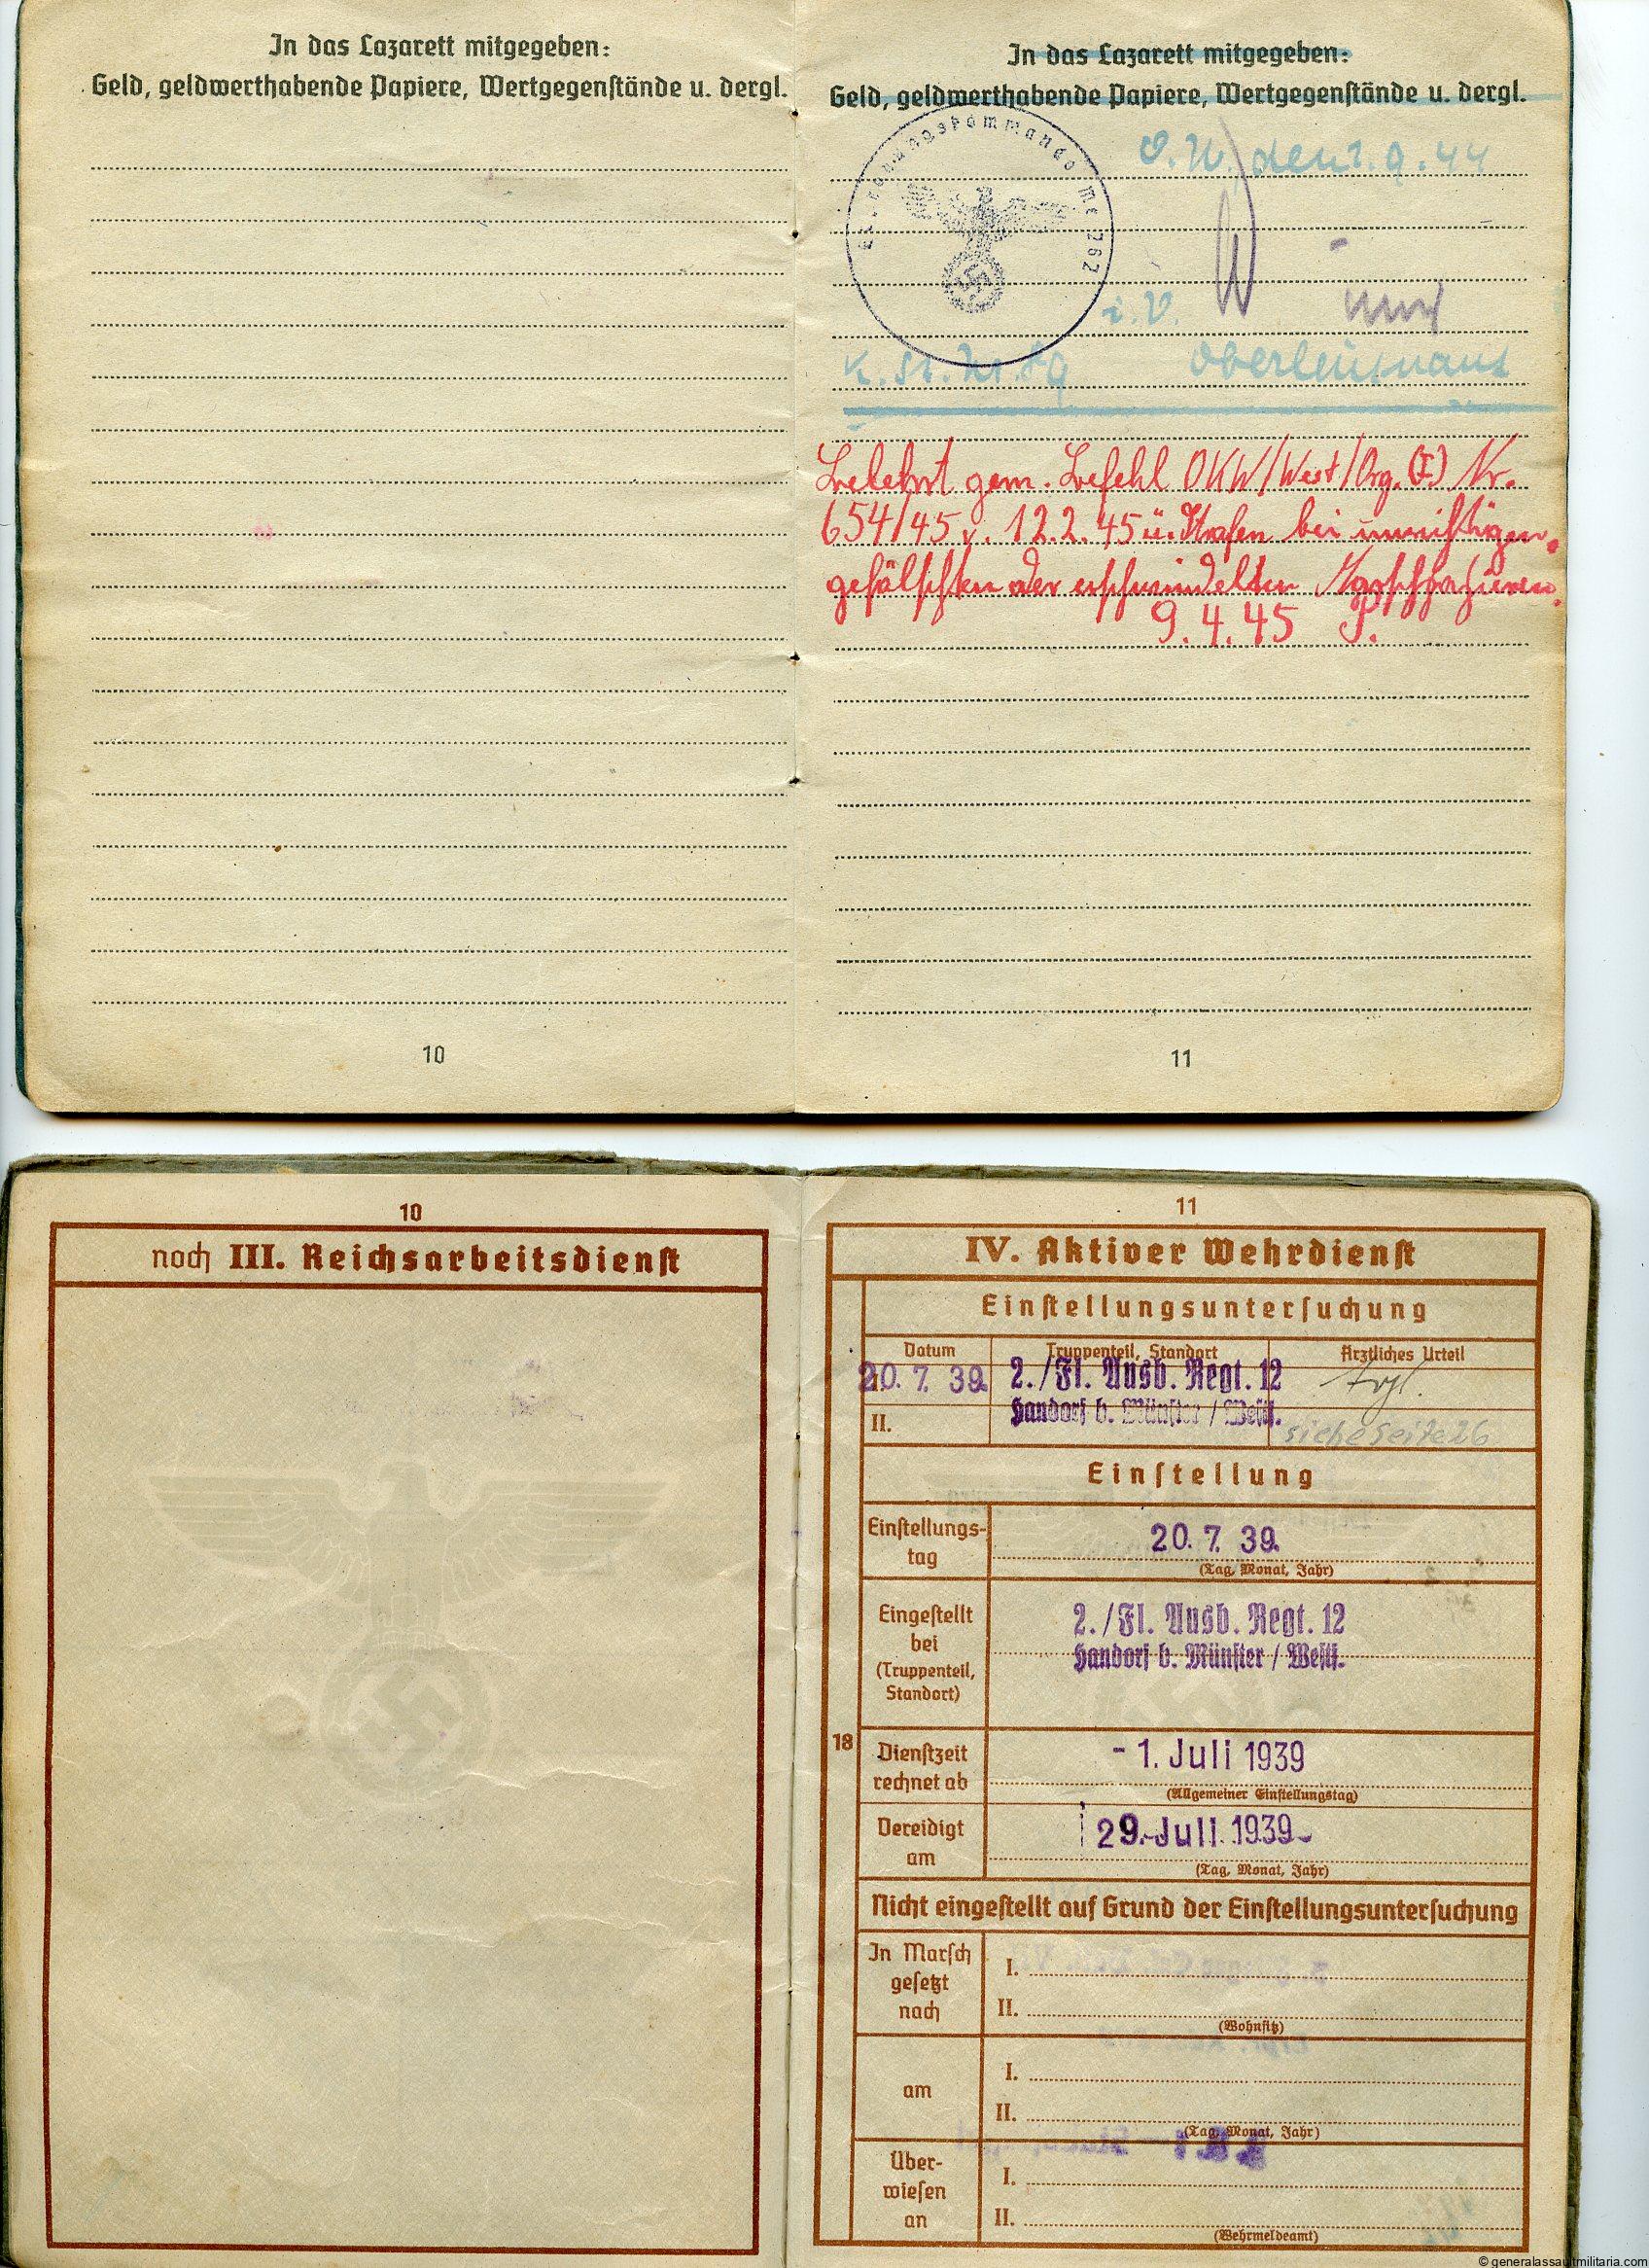 In das Lazarett mitgegeben:
Geld, geldwerthabende Papiere, Wertgegenstände u. dergl.
10
In das Lazarett mitgegeben:
Geld, geldwerthabende Papiere, Wertgegenstände u. dergl.
Erprobungskommando Me 262
O.U., den 1.9.44
i.V.
K.St.Nr.
Oberleutnant
Belehrt gem. Befehl OKW/West/Org. (I) Nr.
654/45 v. 12.2.45 ü. Strafen bei unrichtigen,
gefälschten oder erschwindelten Marschpapieren.
9.4.45 P.
11
10
noch III. Reichsarbeitsdienst
11
IV. Aktiver Wehrdienst
Einstellungsuntersuchung
Datum Truppenteil, Standort Ärztliches Urteil
20. 7. 39. 2./Fl. Ausb. Regt. 12
II. Handorf b. Münster / Westf. siehe Seite 26
Einstellung
Einstellungs-
tag
20. 7. 39.
(Tag, Monat, Jahr)
Eingestellt
bei
(Truppenteil,
Standort)
2./Fl. Ausb. Regt. 12
Handorf b. Münster / Westf.
18
Dienstzeit
rechnet ab
- 1. Juli 1939
(Allgemeiner Einstellungstag)
Vereidigt
am
29. Juli 1939
(Tag, Monat, Jahr)
Nicht eingestellt auf Grund der Einstellungsuntersuchung
In Marsch
gesetzt
nach
I.
II.
(Wohnsitz)
am
I.
II.
(Tag, Monat, Jahr)
Über-
wiesen
an
I.
II.
(Wehrmeldeamt)
© generalassaultmilitaria.com